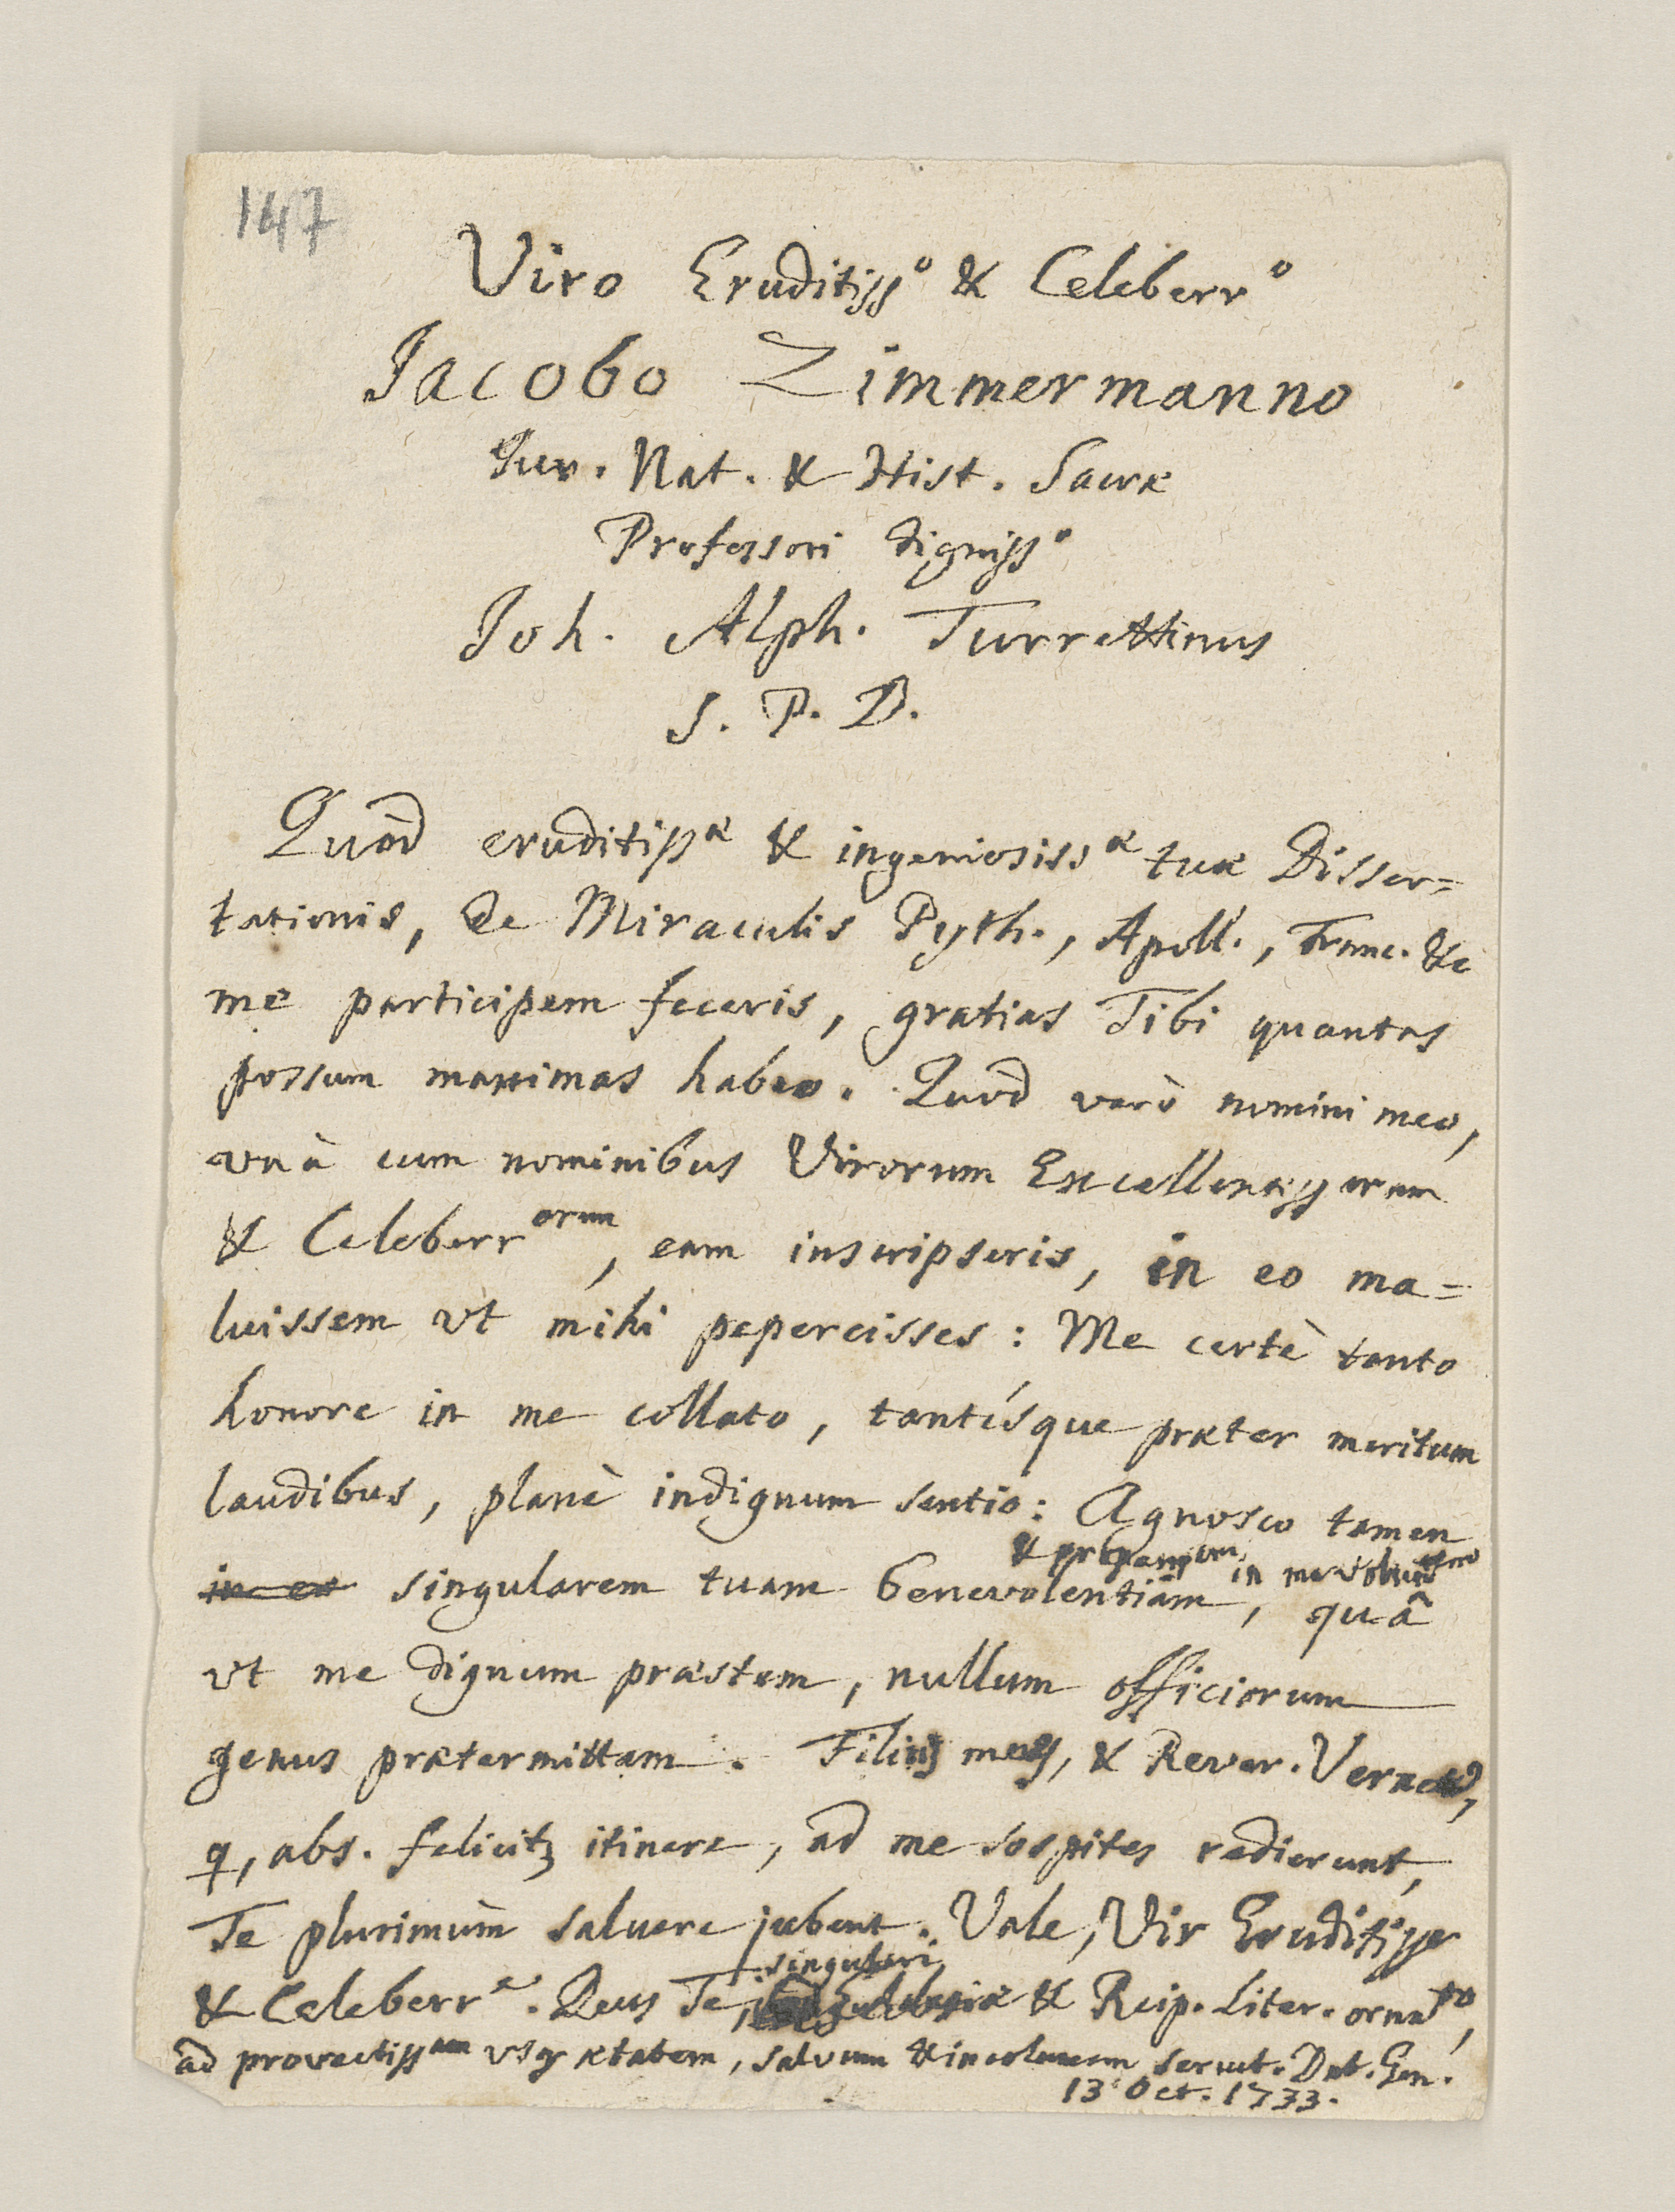 147
Viro Eruditiss° & Celeberr°
Jacobo Zimmermanno
Jur. Nat. & Hist. Sacræ
Professori digniss°
Joh. Alph. Turrettinus
S. P. D.
Quòd eruditissæ & ingeniosissæ tuæ Disser=
tationis, de Miraculis Pyth., Apoll., Franc. &c
me participem feceris, gratias Tibi quantas
possum maximas habeo. Quod verò nomini meo,
vnà cum nominibus Virorum Excellentissorum
& Celeberrorum, eam inscripseris, in eo ma=
luissem vt mihi pepercisses: Me certè tanto
honore in me collato, tantísque præter meritum
laudibus, planè indignum sentio: Agnosco tamen
& propensam in me voluntatem
singularem tuam benevolentiam, quâ
vt me dignum præstem, nullum officiorum
genus prætermittam. Filius meus, & Rever. Vernet,
q, abs. felicitz itinere, ad me sospites redierunt,
Te plurimùm saluere jubent. Vale, Vir Eruditisse
singulari
& Celeberre. Deus Te, Ecclesiæ & Reip. Liter. ornato,
ad provectissam vsq ætatem, salvum & incolumem servet. Dat. Gen.
13 Oct. 1733.